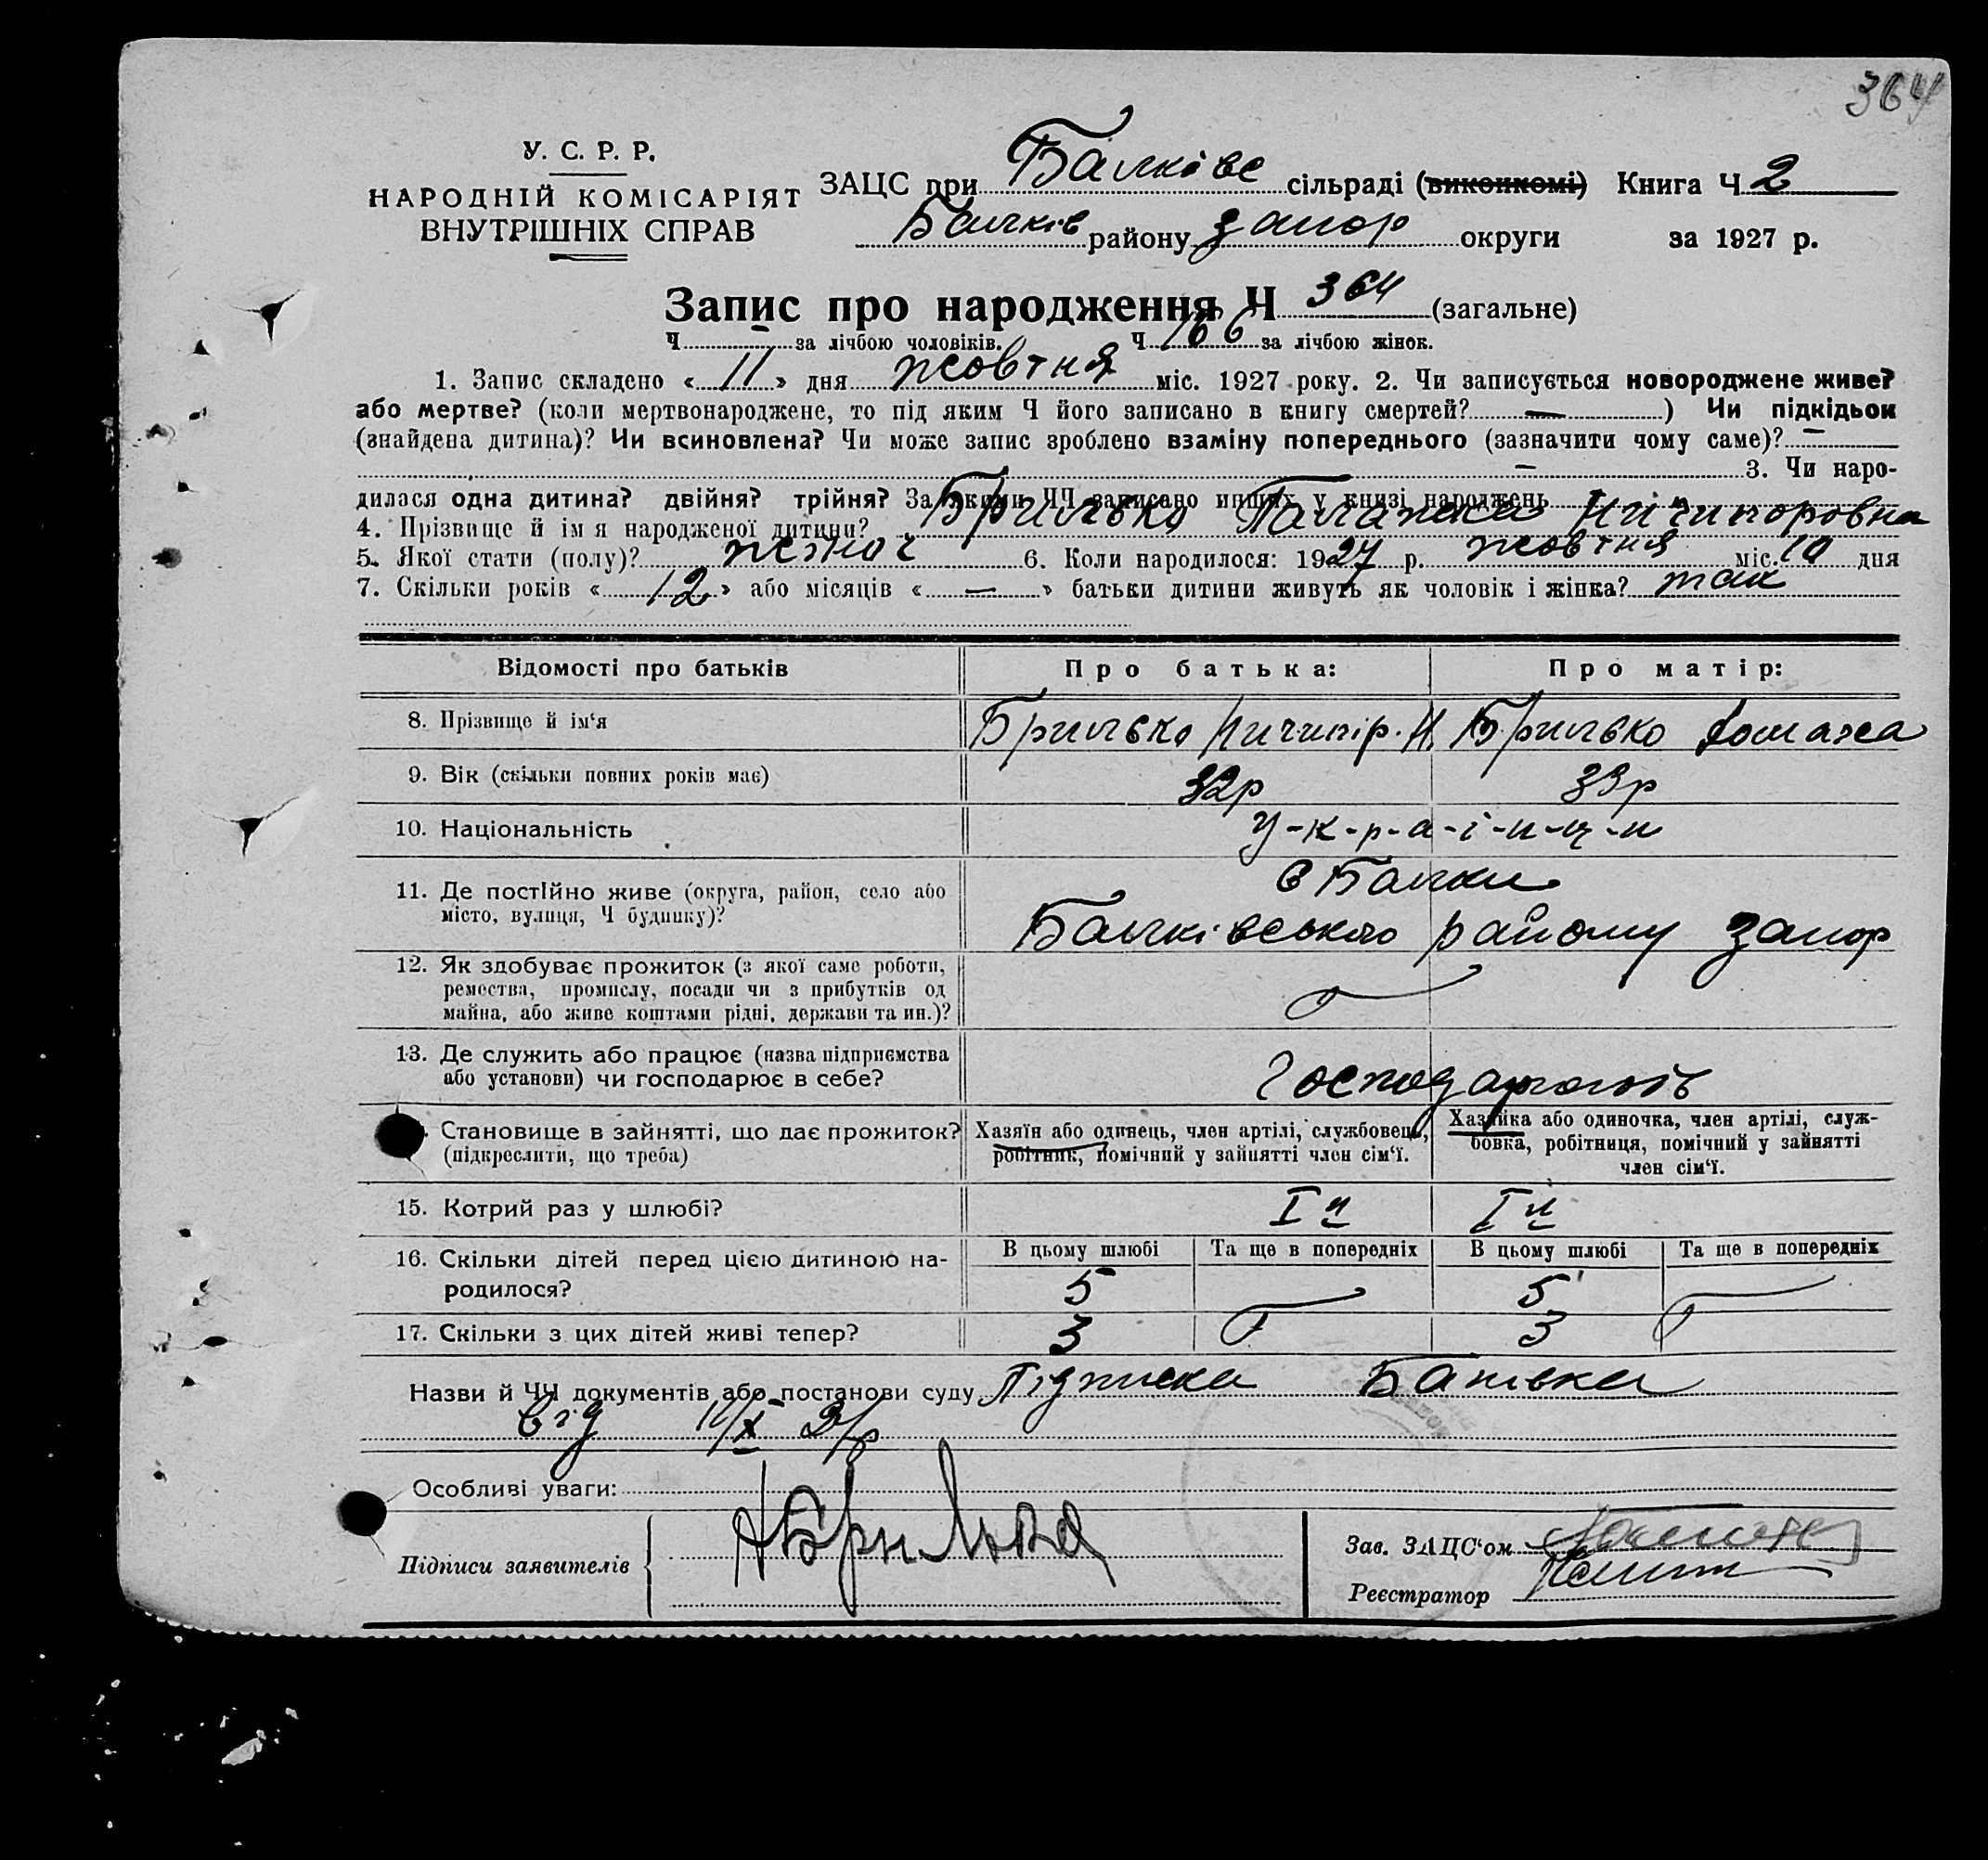 364
У. С. Р. Р.
НАРОДНІЙ КОМІСАРІЯТ
ВНУТРІШНІХ СПРАВ
ЗАЦС при Балківс сільраді (виконкомі) Книга Ч 2
Балків району Запор округи за 1927 р.
Запис про народження Ч 364 (загальне)
Ч — за лічбою чоловіків. Ч 166 за лічбою жінок.
1. Запис складено « 11 » дня жовтня міс. 1927 року. 2. Чи записується новороджене живе?
або мертве? (коли мертвонароджене, то під яким Ч його записано в книгу смертей? — ) Чи підкідьок
(знайдена дитина)? Чи всиновлена? Чи може запис зроблено взаміну попереднього (зазначити чому саме)? —
— 3. Чи наро-
дилася одна дитина? двійня? трійня? За якими ЧЧ записано инших у книзі народжень
4. Прізвище й ім я народженої дитини? Брилько Палажка Ничипоровна
5. Якої стати (полу)? жіночої 6. Коли народилося: 1927 р. жовтня міс. 10 дня
7. Скільки років « 12 » або місяців « — » батьки дитини живуть як чоловік і жінка? так
Відомості про батьків Про батька: Про матір:
8. Прізвище й ім'я Брилько Ничипір. Н. Брилько Домаха
9. Вік (скільки повних років має) 32р 33р
10. Національність у-к-р-а-ї-н-ц-и
11. Де постійно живе (округа, район, село або
місто, вулиця, Ч будинку)?
с Балки
Балківського району Запор
12. Як здобуває прожиток (з якої саме роботи,
ремества, промислу, посади чи з прибутків од
майна, або живе коштами рідні, держави та ин.)?
13. Де служить або працює (назва підприємства
або установи) чи господарює в себе?
Господарюють
Становище в зайнятті, що дає прожиток?
(підкреслити, що треба)
Хазяїн або одинець, член артілі, службовець,
робітник, помічний у зайнятті член сім'ї.
Хазяйка або одиночка, член артілі, служ-
бовка, робітниця, помічний у зайнятті
член сім'ї.
15. Котрий раз у шлюбі? I й I й
16. Скільки дітей перед цією дитиною на-
родилося?
В цьому шлюбі Та ще в попередніх В цьому шлюбі Та ще в попередніх
5 5
17. Скільки з цих дітей живі тепер? 3 3
Назви й ЧЧ документів або постанови суду Підписка Батька
від 11/X 27р
Особливі уваги:
Підписи заявителів
Зав. ЗАЦС'ом
Реєстратор